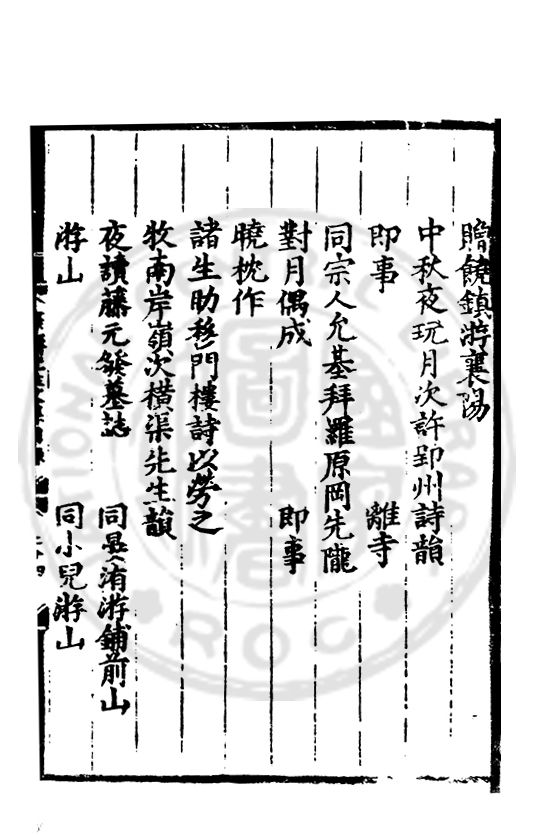 贈饒鎮游襄陽
中秋夜玩月次許郢州詩韻
即事 離寺
同宗人允基拜羅原岡先隴
對月偶成 即事
曉枕作
諸生助移門樓詩以勞之
牧南岸嶺次橫渠先生韻
夜讀藤元發墓誌 同吳洧游鋪前山
游山 同小兒游山